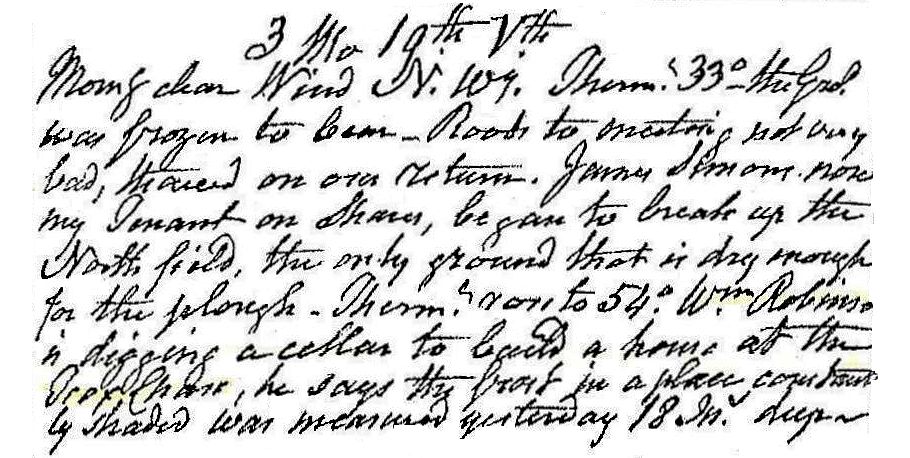 3 Mo 19th Vth
Morng clear Wind N. Wy. Therm.r 33° – the Grd.
was frozen to bear – Roads to meeting not very
bad, thawed on our return. James Simons now
my Tenant on Shares, began to break up the
North field, the only ground that is dry enough
for the plough – Therm.r rose to 54°. Wm. Robinson
is digging a cellar to build a house at the
he says the frost in a place constant
ly shaded was measured yesterday 18 In.s deep –